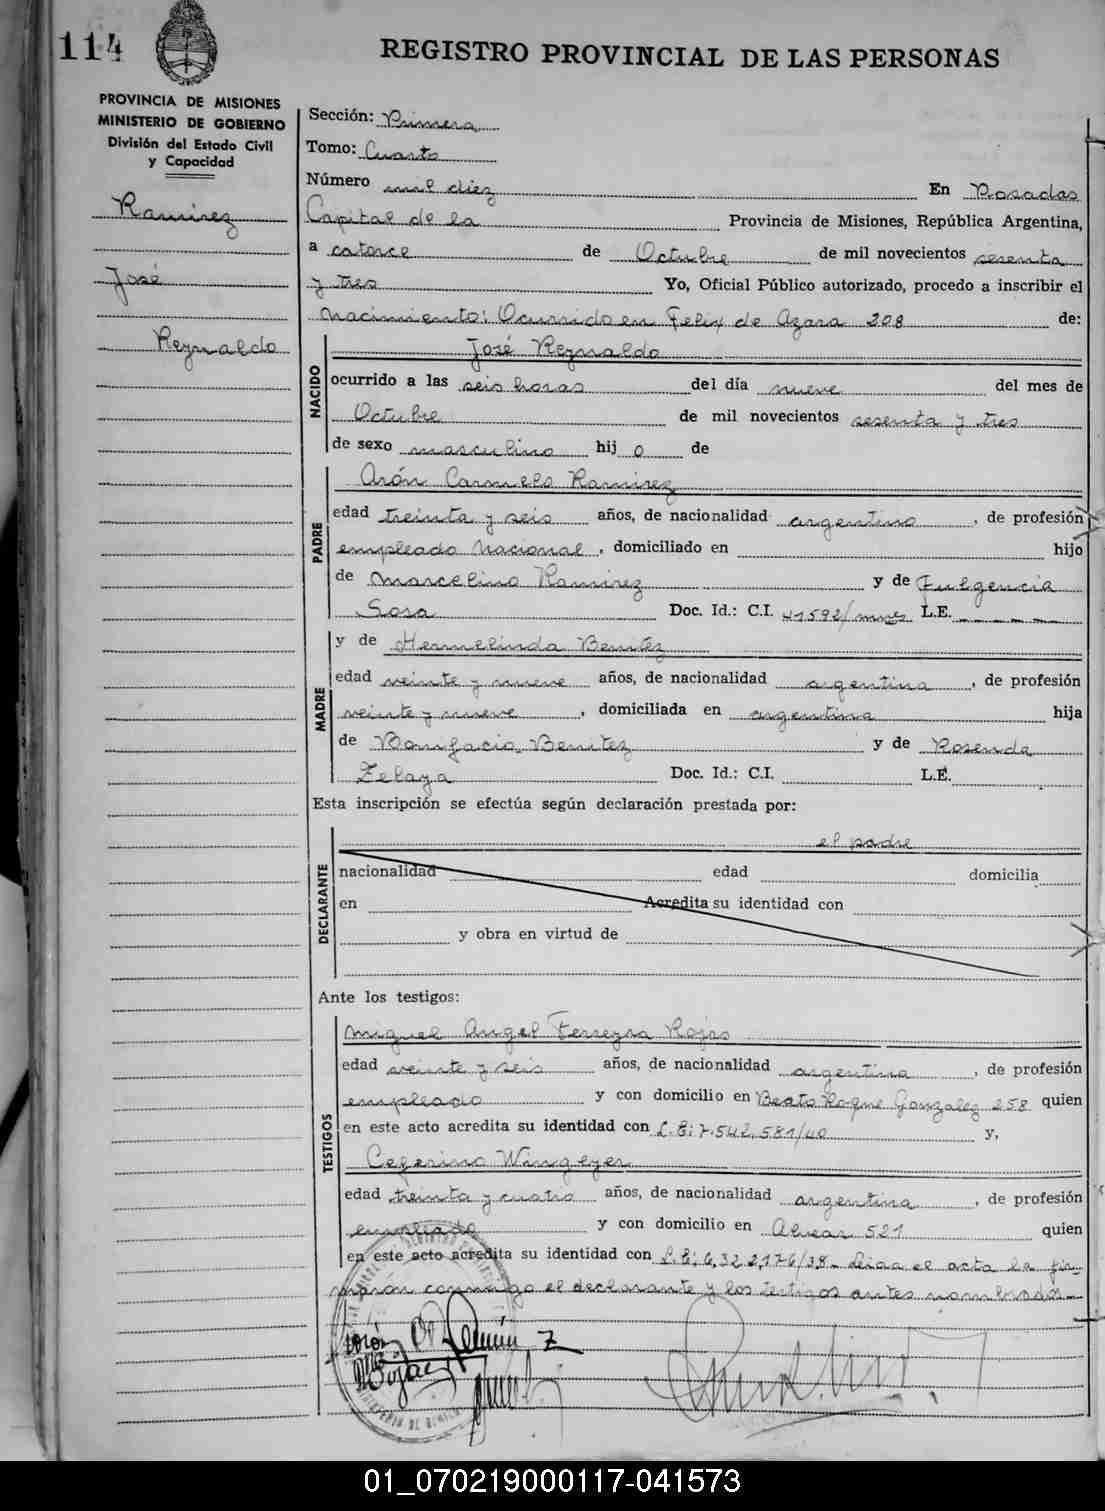 114
REGISTRO PROVINCIAL DE LAS PERSONAS
PROVINCIA DE MISIONES
MINISTERIO DE GOBIERNO
División del Estado Civil
y Capacidad
Ramirez
José
Reynaldo
Sección: Primera
Tomo: Cuarto
Número mil diez En Posadas
Capital de la Provincia de Misiones, República Argentina,
a catorce de Octubre de mil novecientos sesenta
y tres Yo, Oficial Público autorizado, procedo a inscribir el
Nacimiento: Ocurrido en Felix de Azara 208 de:
NACIDO
José Reynaldo
ocurrido a las seis horas del día nueve del mes de
Octubre de mil novecientos sesenta y tres
de sexo masculino hij o de
PADRE
Arón Carmelo Ramirez
edad treinta y seis años, de nacionalidad argentino, de profesión
empleado Nacional, domiciliado en hijo
de Marcelino Ramirez y de Fulgencia
Sosa Doc. Id.: C.I. 41592/mnes L.E.
MADRE
y de Hermelinda Benitez
edad veinte y nueve años, de nacionalidad argentina, de profesión
veinte y nueve, domiciliada en argentina hija
de Bonifacio Benitez y de Rosenda
Zelaya Doc. Id.: C.I. L.E.
Esta inscripción se efectúa según declaración prestada por:
DECLARANTE
el padre
nacionalidad edad domicilia
en Acredita su identidad con
y obra en virtud de
Ante los testigos:
TESTIGOS
Miguel Angel Ferreyra Rojas
edad veinte y seis años, de nacionalidad argentina, de profesión
empleado y con domicilio en Beato Roque Gonzalez 258 quien
en este acto acredita su identidad con L.E: 7.542.581/40 y,
Ceferino Wingeyer
edad treinta y cuatro años, de nacionalidad argentina, de profesión
empleado y con domicilio en Alvear 521 quien
en este acto acredita su identidad con L.E: 6,322,176/38- Leida el acta la fir-
marón conmigo el declarante y los testigos antes nombrados-
01_070219000117-041573